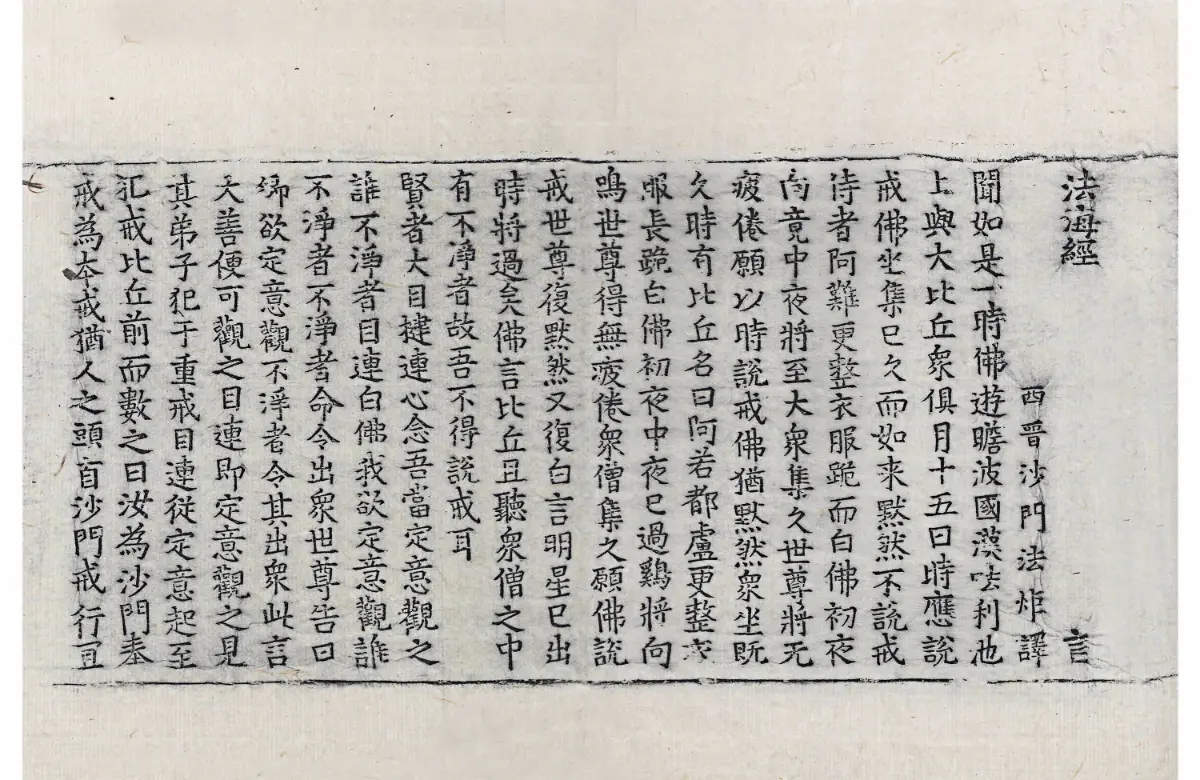 法海經 言
西晉沙門法炬譯
聞如是一時佛遊瞻波國漢呿利池
上與大比丘衆俱月十五日時應說
戒佛坐集已久而如来黙然不說戒
侍者阿難更整衣服跪而白佛初夜
向竟中夜將至大衆集久世尊將无
疲倦願以時說戒佛猶黙然衆坐旣
久時有比丘名曰阿若都盧更整衣
服長跪白佛初夜中夜已過鷄將向
鳴世尊得無疲倦衆僧集久願佛說
戒世尊復黙然又復白言明星已出
時將過矣佛言比丘且聽衆僧之中
有不淨者故吾不得說戒耳
賢者大目揵連心念吾當定意觀之
誰不淨者目連白佛我欲定意觀誰
不淨者不淨者命令出衆世尊告曰
卿欲定意觀不淨者令其出衆此言
大善便可觀之目連即定意觀之見
其弟子犯于重戒目連從定意起至
犯戒比丘前而數之曰汝為沙門奉
戒為本戒猶人之頭首沙門戒行宜